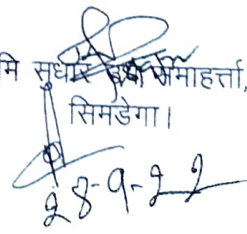 मि सुधार उप समाहर्त्ता,
सिमडेगा।
28-9-22